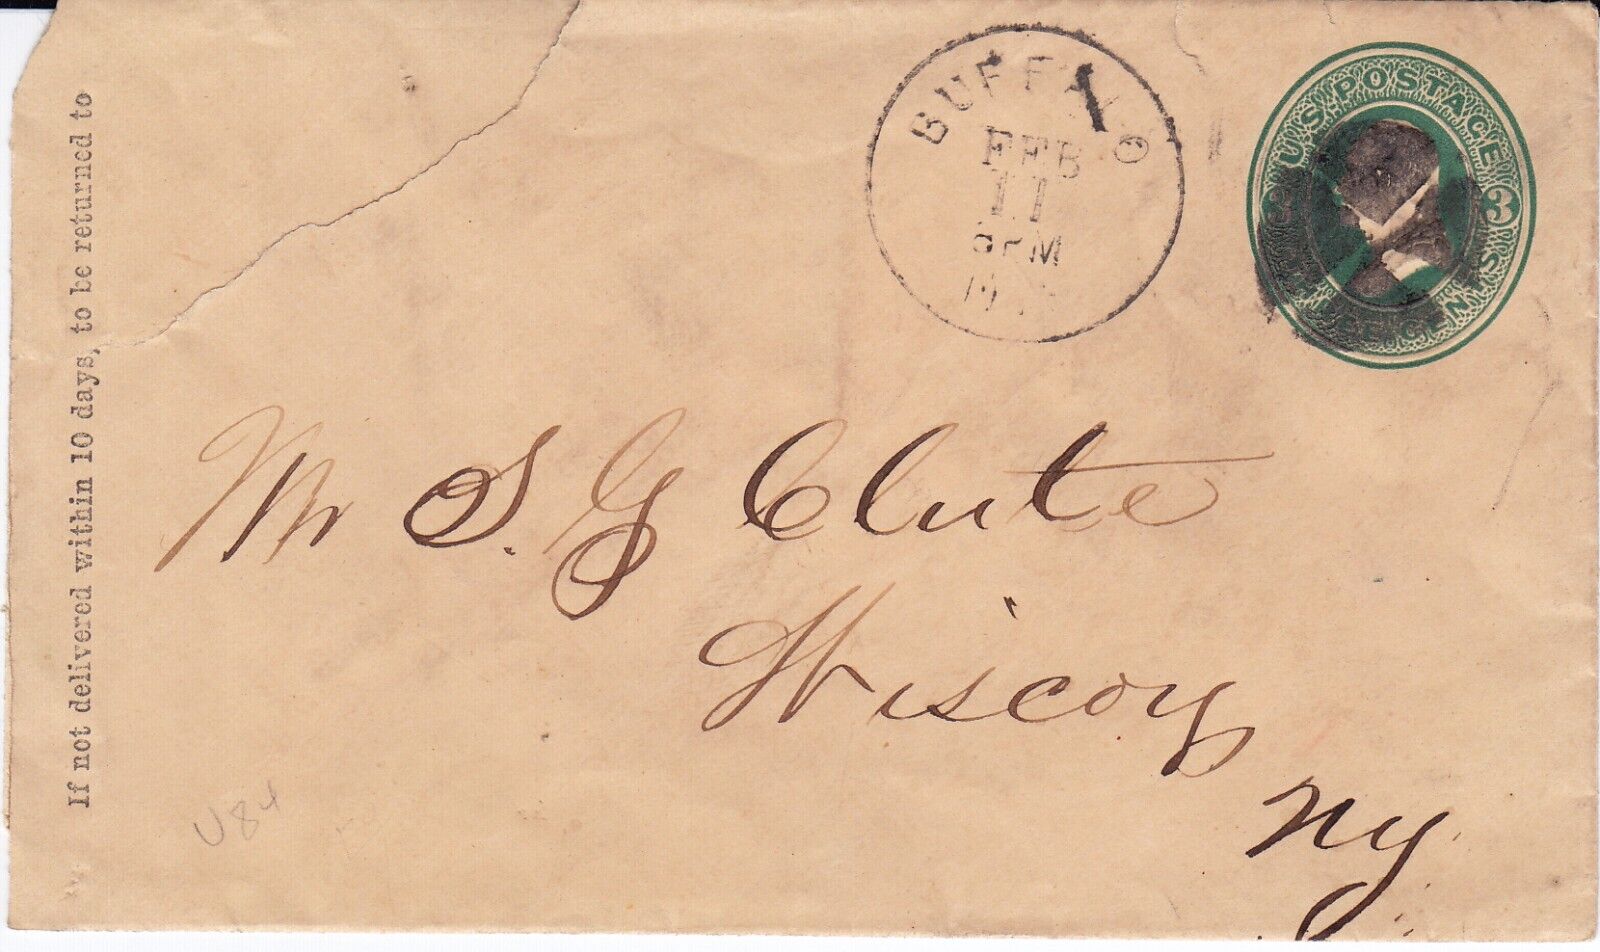 If not delivered within 10 days, to be returned to
BUFFALO
FEB
11
PM
U.S. POSTAGE
3
THREE CENTS
Mr S. G Clute
Wiscoy
NY
U84